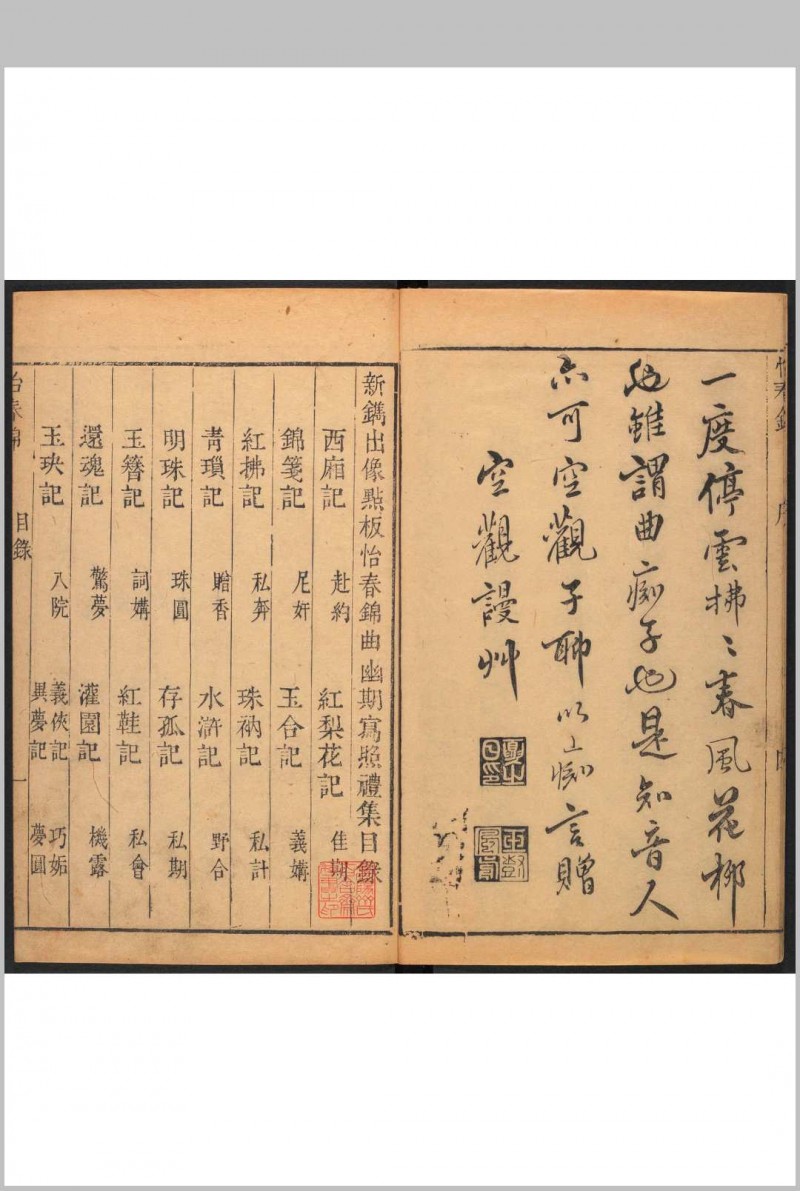 一度停雲拂〻春風花柳
也雖謂曲痴子也是知音人
亦可空觀子聊以痴言贈
空觀謾艸
新鐫出像點板怡春錦曲幽期寫照禮集目錄
西廂記 赴約 紅梨花記 佳期
錦箋記 尼奸 玉合記 義媾
紅拂記 私奔 珠衲記 私計
青瑣記 贈香 水滸記 野合
明珠記 珠圓 存孤記 私期
玉簪記 詞媾 紅鞋記 私會
還魂記 驚夢 灌園記 機露
玉玦記 入院 義俠記 巧姤
異夢記 夢圓
怡春錦 目錄 一